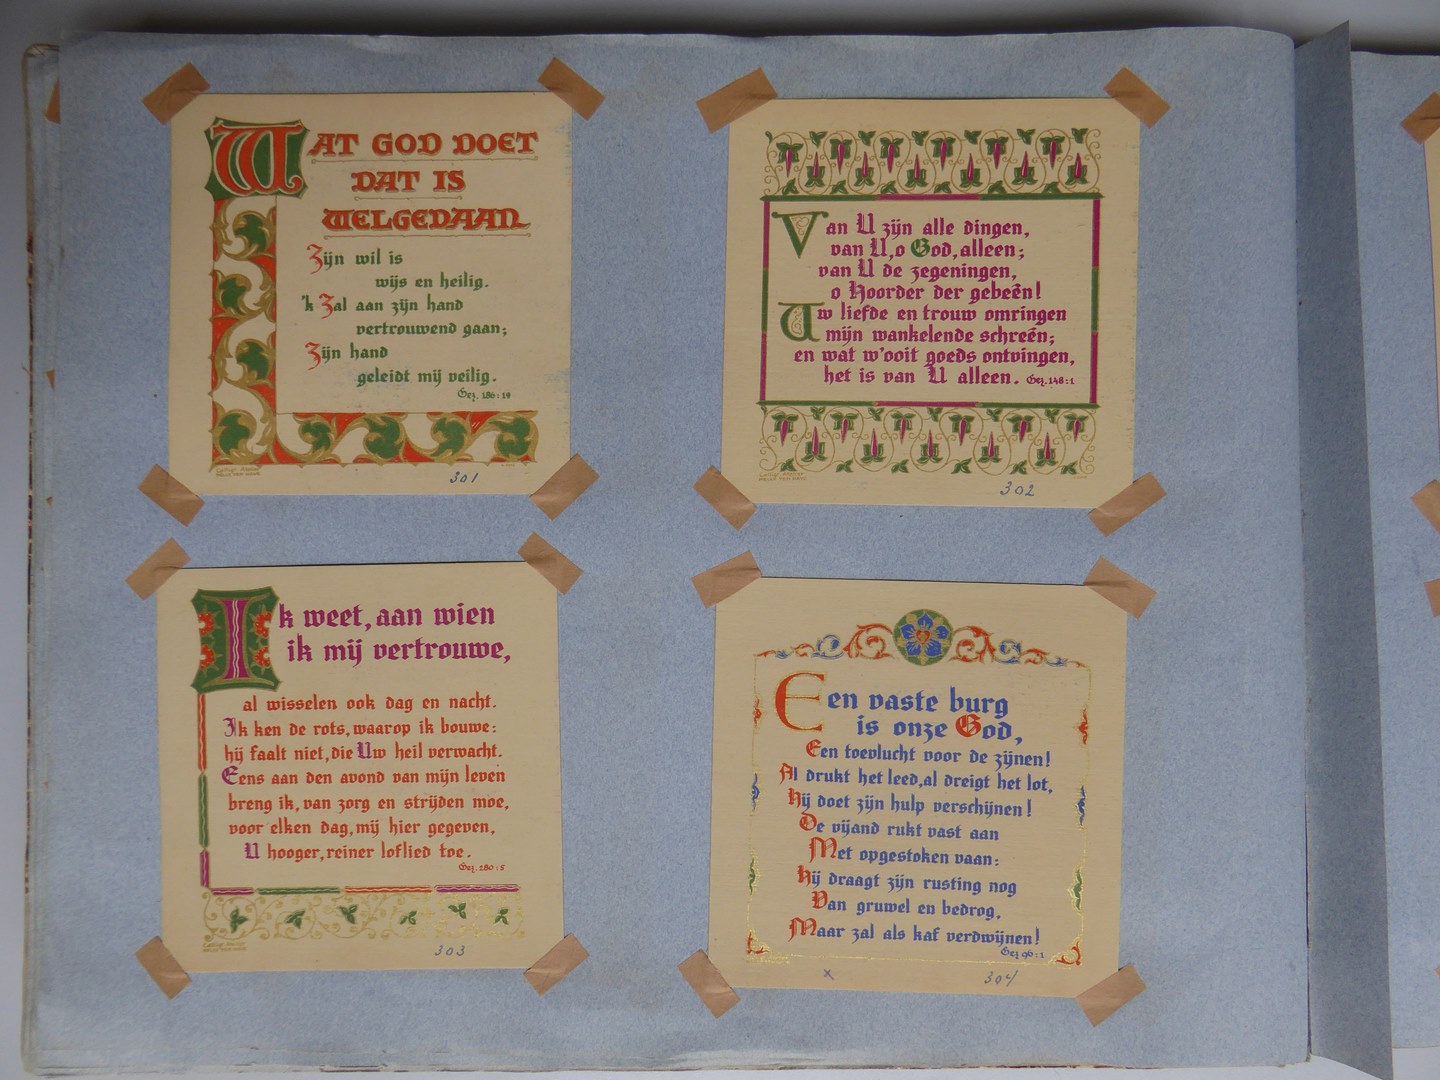 WAT GOD DOET
DAT IS
WELGEDAAN
Zijn wil is
wijs en heilig.
'k Zal aan zijn hand
vertrouwend gaan;
Zijn hand
geleidt mij veilig.
Gez. 186:19
301
Van U zijn alle dingen,
van U, o God, alleen;
van U de zegeningen,
o Hoorder der gebeên!
Uw liefde en trouw omringen
mijn wankelende schreên;
en wat w'ooit goeds ontvingen,
het is van U alleen. Gez. 148:1
302
Ik weet, aan wien
ik mij vertrouwe,
al wisselen ook dag en nacht.
Ik ken de rots, waarop ik bouwe:
hij faalt niet, die Uw heil verwacht.
Eens aan den avond van mijn leven
breng ik, van zorg en strijden moe,
voor elken dag, mij hier gegeven,
U hooger, reiner loflied toe.
Gez. 280:5
303
Een vaste burg
is onze God,
Een toevlucht voor de zijnen!
Al drukt het leed, al dreigt het lot,
Hij doet zijn hulp verschijnen!
De vijand rukt vast aan
Met opgestoken vaan:
Hij draagt zijn rusting nog
Van gruwel en bedrog,
Maar zal als kaf verdwijnen!
Gez 96:1
x
304